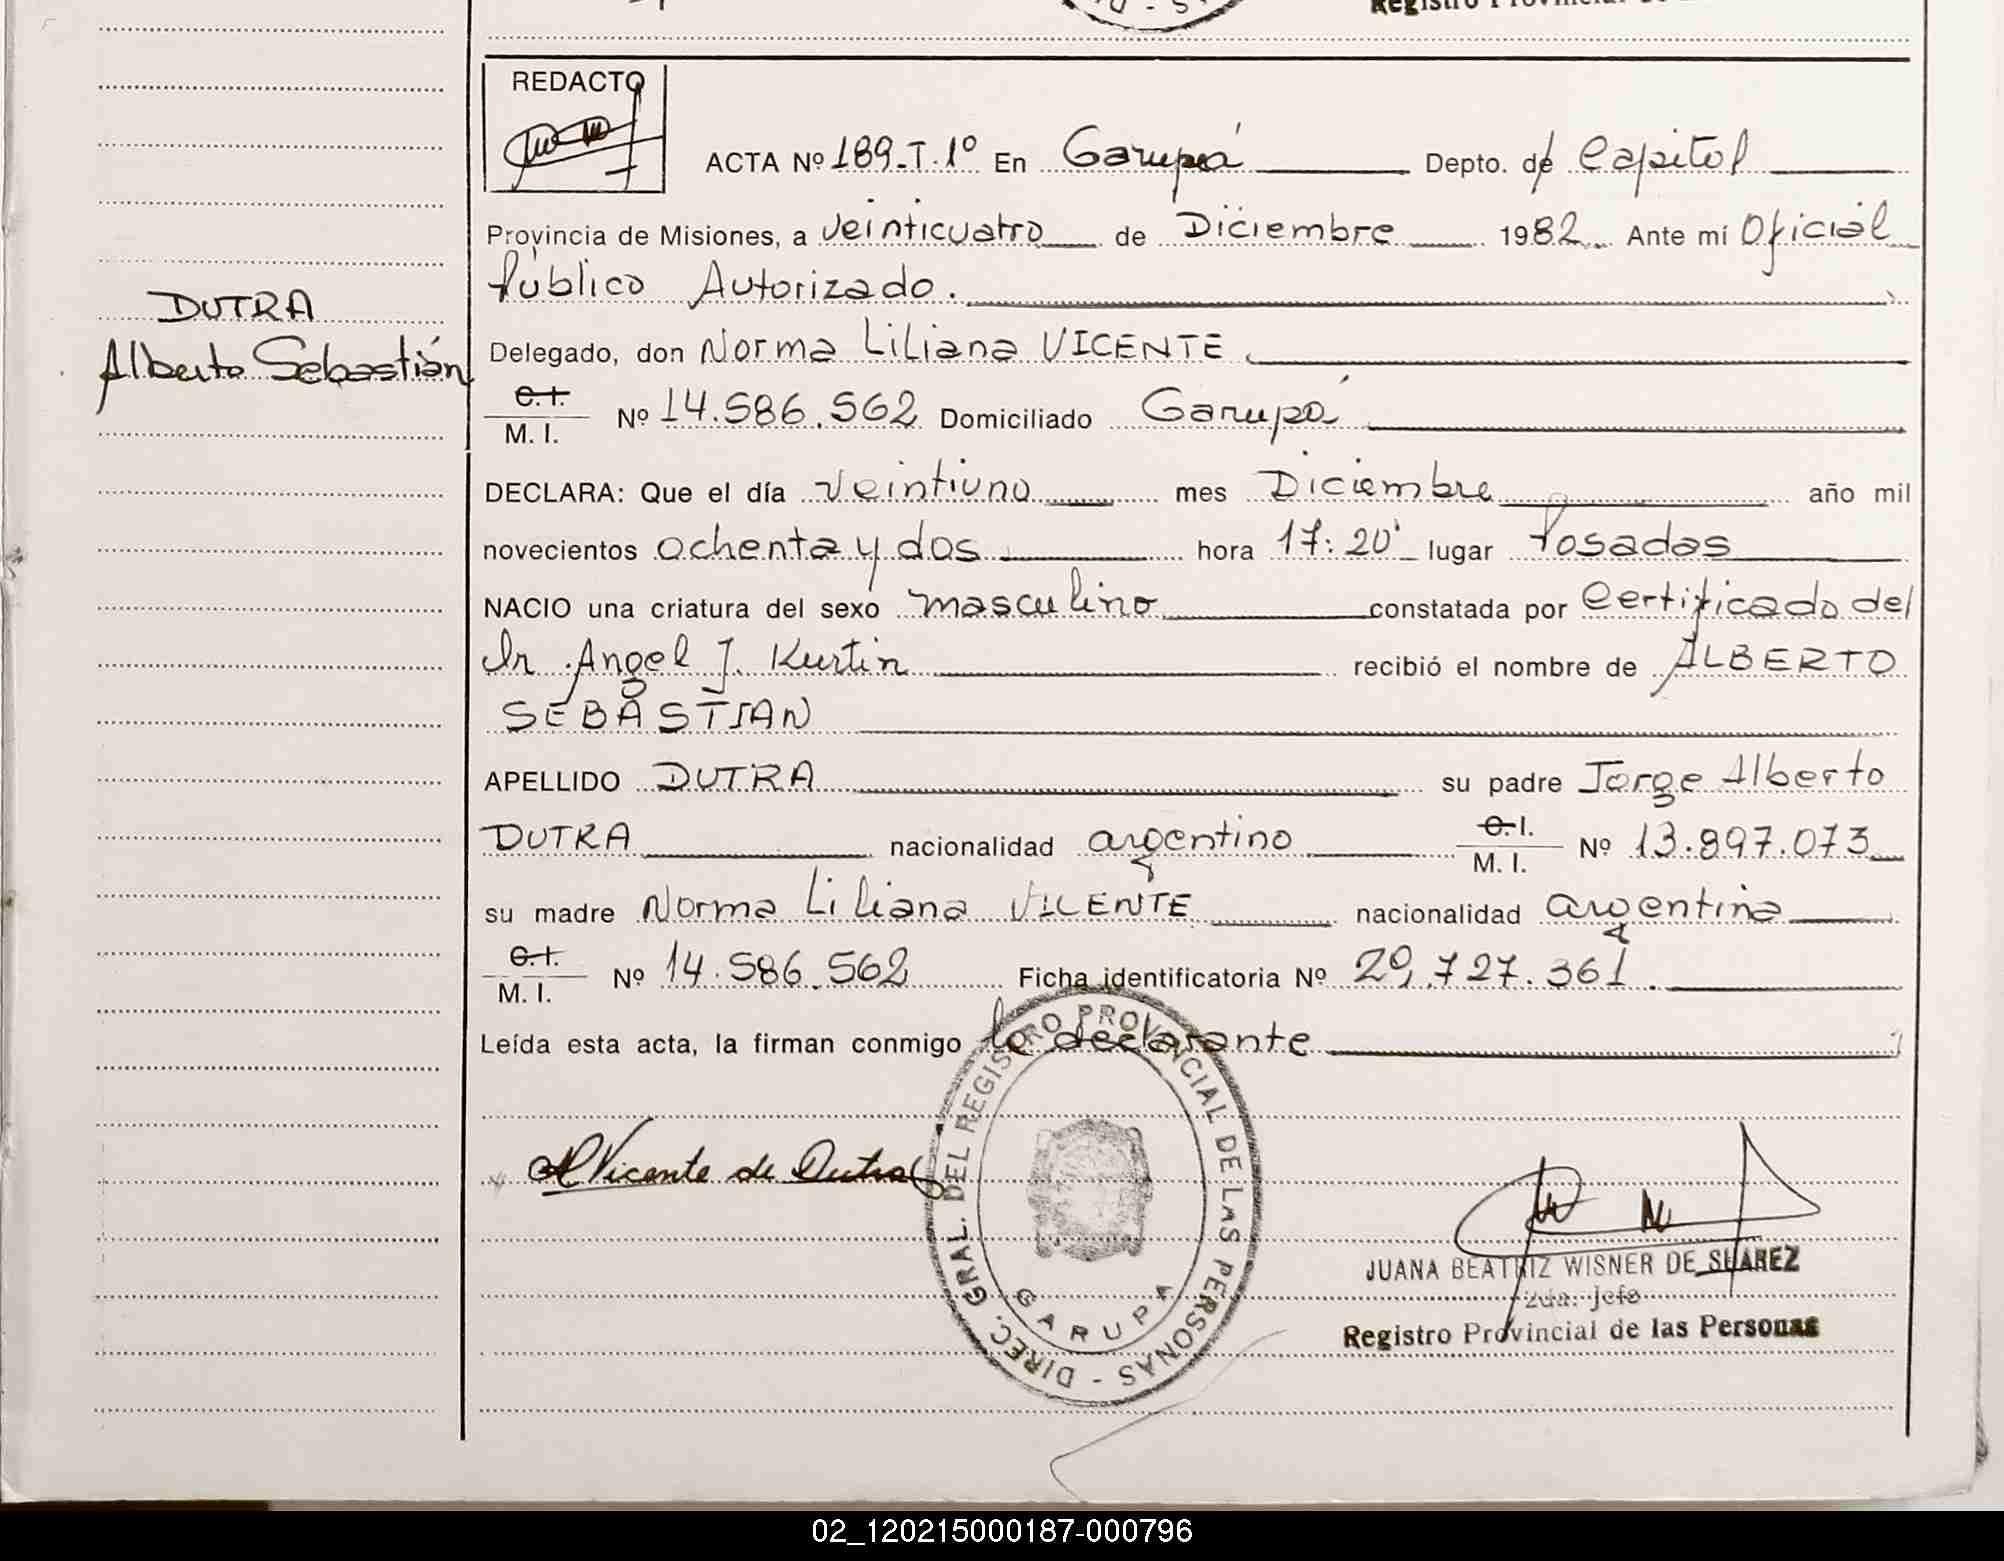 REDACTO
ACTA Nº 189-T.1º En Garupá Depto. de Capital
Provincia de Misiones, a veinticuatro de Diciembre 1982 Ante mí Oficial
Público Autorizado.
DUTRA
Alberto Sebastián
Delegado, don Norma Liliana VICENTE
C.I.
M. I. Nº 14.586.562 Domiciliado Garupá
DECLARA: Que el día veintiuno mes Diciembre año mil
novecientos ochenta y dos hora 17:20' lugar Posadas
NACIO una criatura del sexo masculino constatada por Certificado del
Dr. Angel J. Kurtin recibió el nombre de ALBERTO
SEBASTIAN
APELLIDO DUTRA su padre Jorge Alberto
DUTRA nacionalidad argentino C.I. M. I. Nº 13.897.073
su madre Norma Liliana VICENTE nacionalidad argentina
C.I.
M. I. Nº 14.586.562 Ficha identificatoria Nº 29.727.361.
Leída esta acta, la firman conmigo la declarante
Vicente de Dutra
DIREC. GRAL. DEL REGISTRO PROVINCIAL DE LAS PERSONAS -
GARUPA
JUANA BEATRIZ WISNER DE SUAREZ
2da. jefe
Registro Provincial de las Personas
02_120215000187-000796